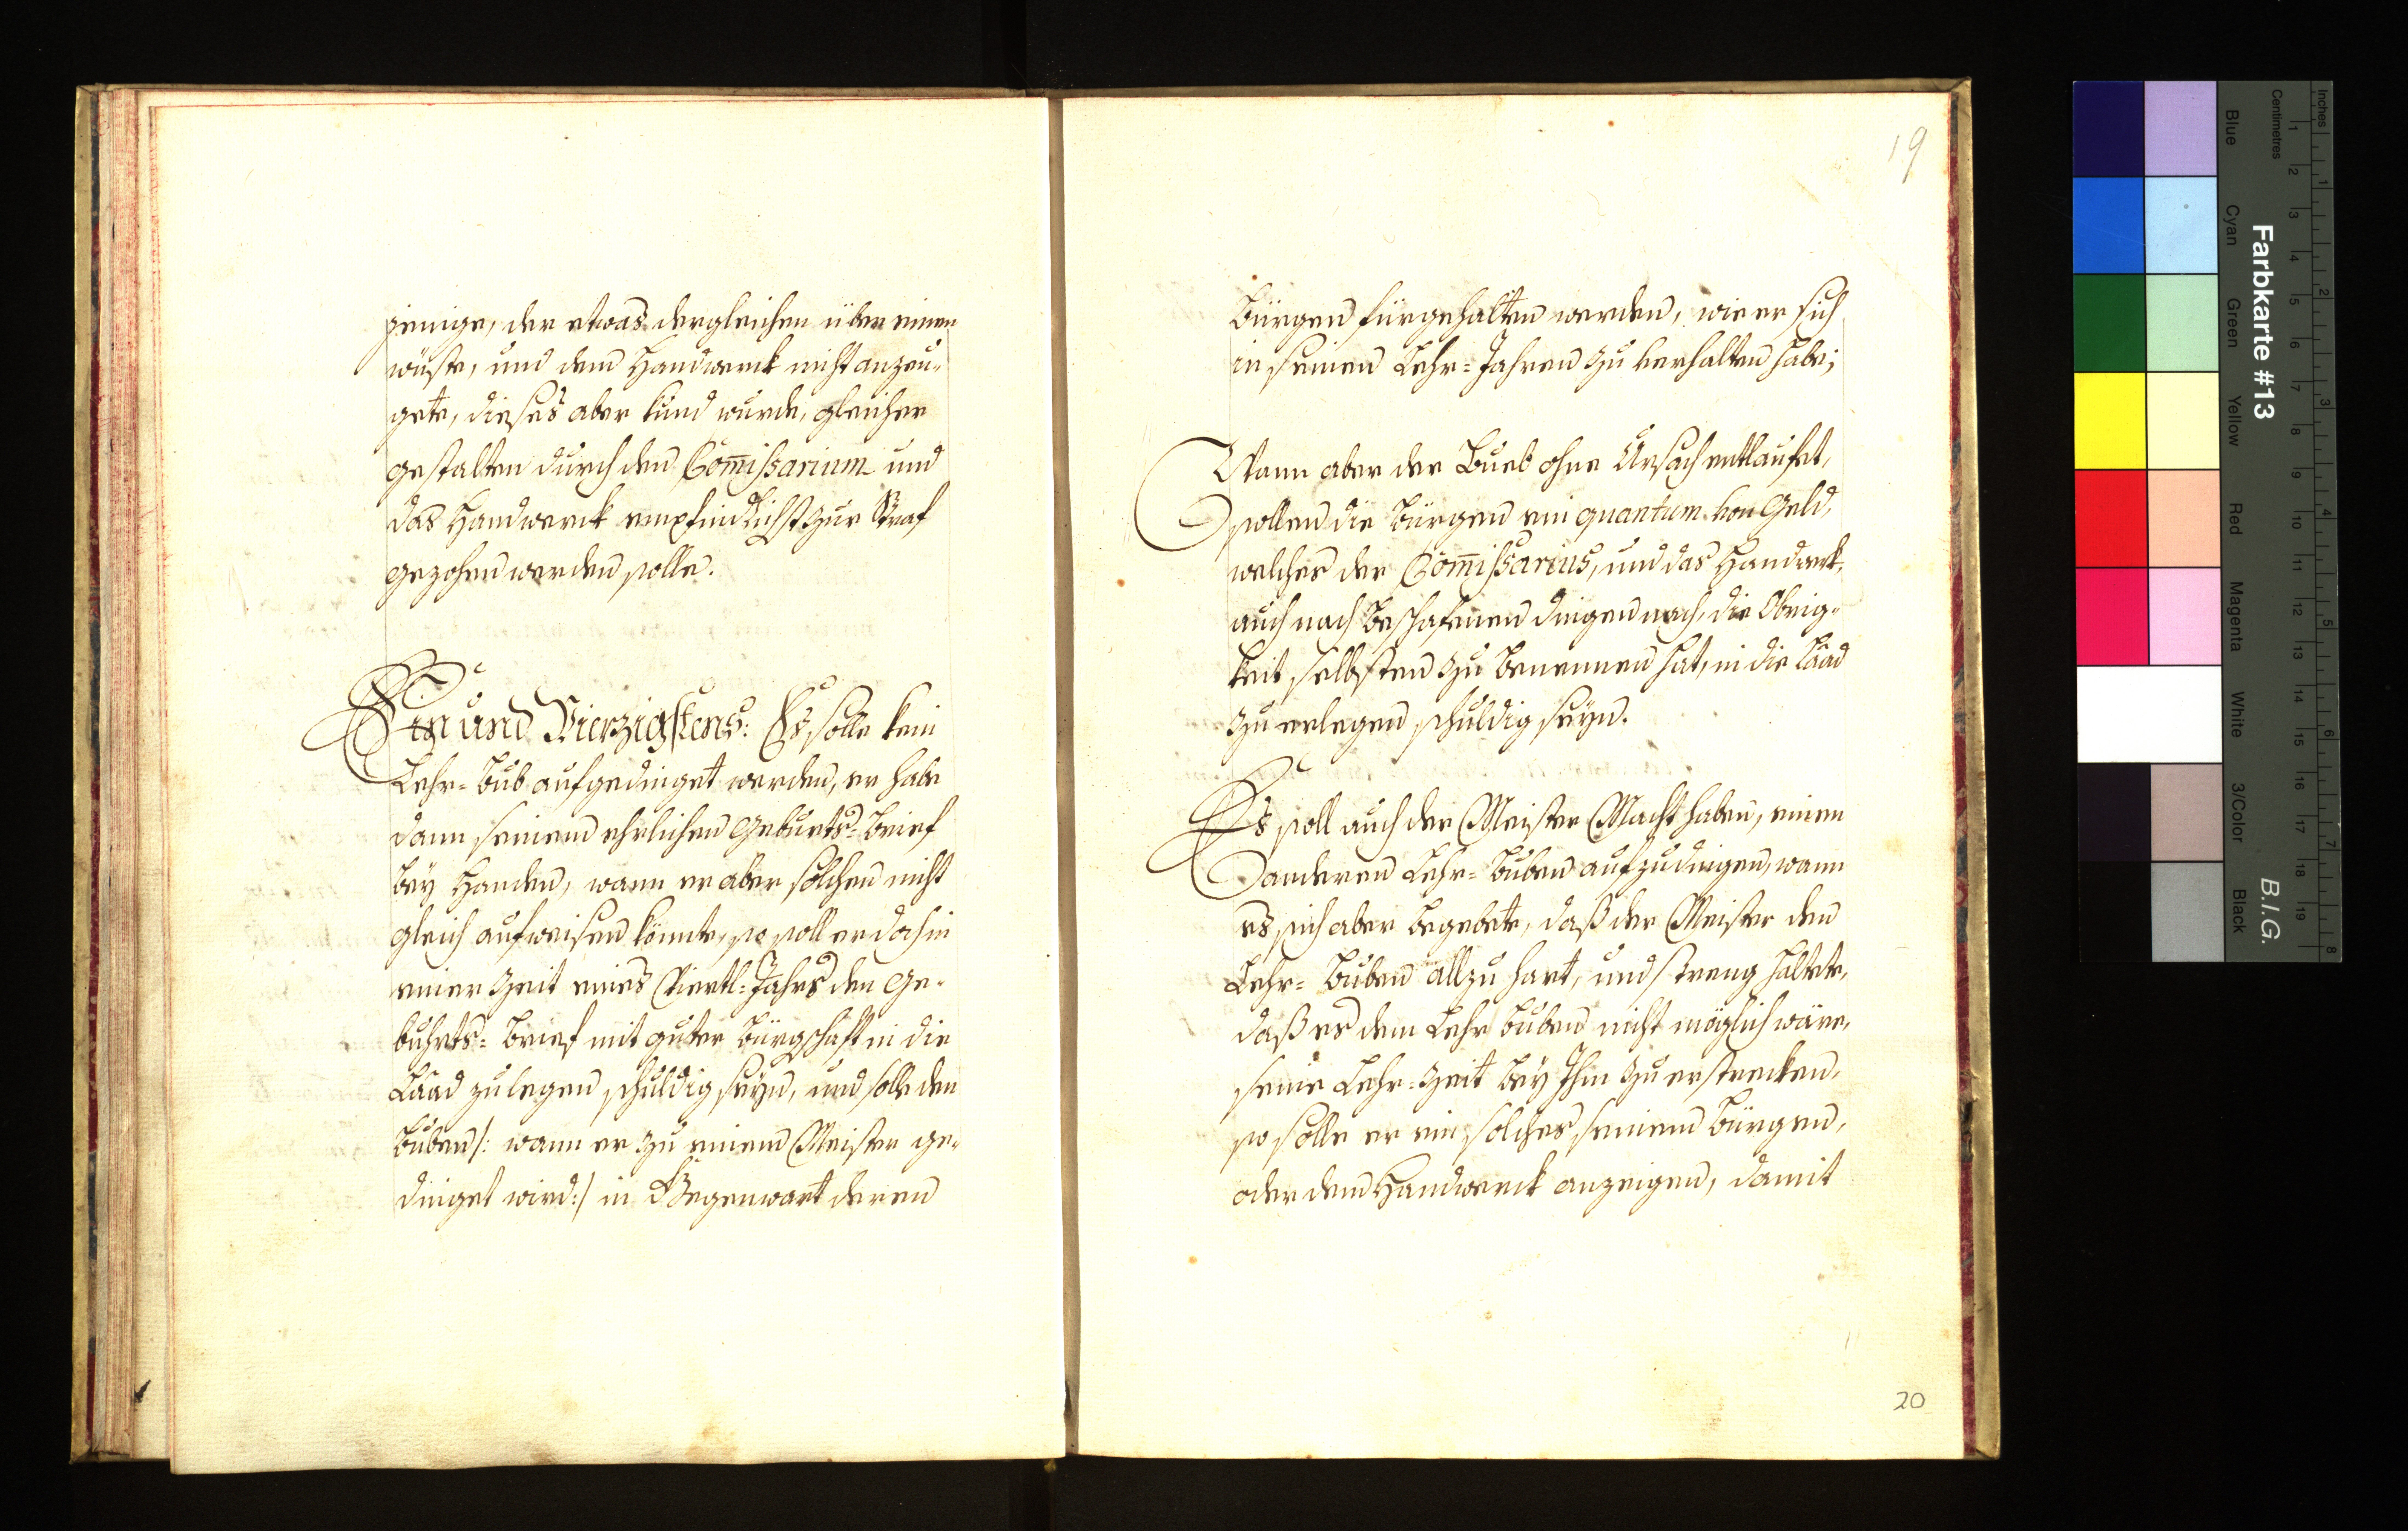 jenige, der etwas dergleichen über einen
wuste, und dem Handwerck nicht anzeu-
gete, dieses aber kund wurde, gleicher
gestalten durch den Com̅ißarium und
das Handwerck empfindlichst zur Straf
gezohen werden solle.
Ein und Vierzigstens: Es solle kein
Lehr=Bub aufgedinget werden, er habe
dann seinen ehrlichen Geburts=Brief
bey Handen, wann er aber solchen nicht
gleich aufweisen könnte, so soll er doch in
einer Zeit eines Viertl=Jahrs den Ge-
buhrts=Brief mit guter Bürgschaft in die
Laad zu legen schuldig seyn, und solle den
Buben /: wann er zu einem Meister ge-
dinget wird :/ in Gegenwart deren
19
Bürgen fürgehalten werden, wie er sich
in seinen Lehr=Jahren zu verhalten habe;
Wann aber der Bueb ohne Ursach entlaufet,
sollen die Bürgen ein quantum von Geld,
welches der Com̅ißarius, und das Handwerk,
auch nach beschafenen dingen nach, die Obrig-
keit selbsten zu benennen hat, in die Laad
zu erlegen schuldig seyn.
Es soll auch der Meister Macht haben, einen
anderen Lehr=Buben aufzudingen, wann
es sich aber begebete, daß der Meister den
Lehr=Buben allzu hart, und streng haltete,
daß es dem Lehr Buben nicht möglich wäre,
seine Lehr=Zeit bey Ihm zu erstrecken,
so solle er ein solches seinem Bürgen,
oder dem Handwerck anzeigen, damit
20
Inches
Centimetres
Farbkarte #13
B.I.G.
Blue
Cyan
Green
Yellow
Red
Magenta
White
3/Color
Black
1 2 3 4 5 6 7 8
1 2 3 4 5 6 7 8 9 10 11 12 13 14 15 16 17 18 19